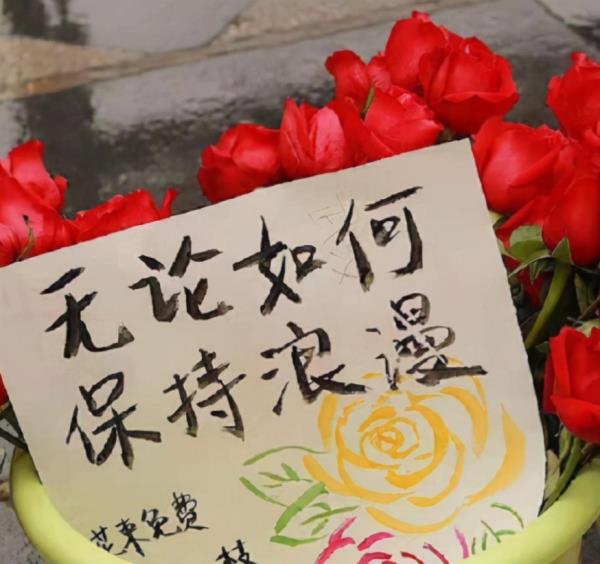 无论如何
保持浪漫
花束免费
枝